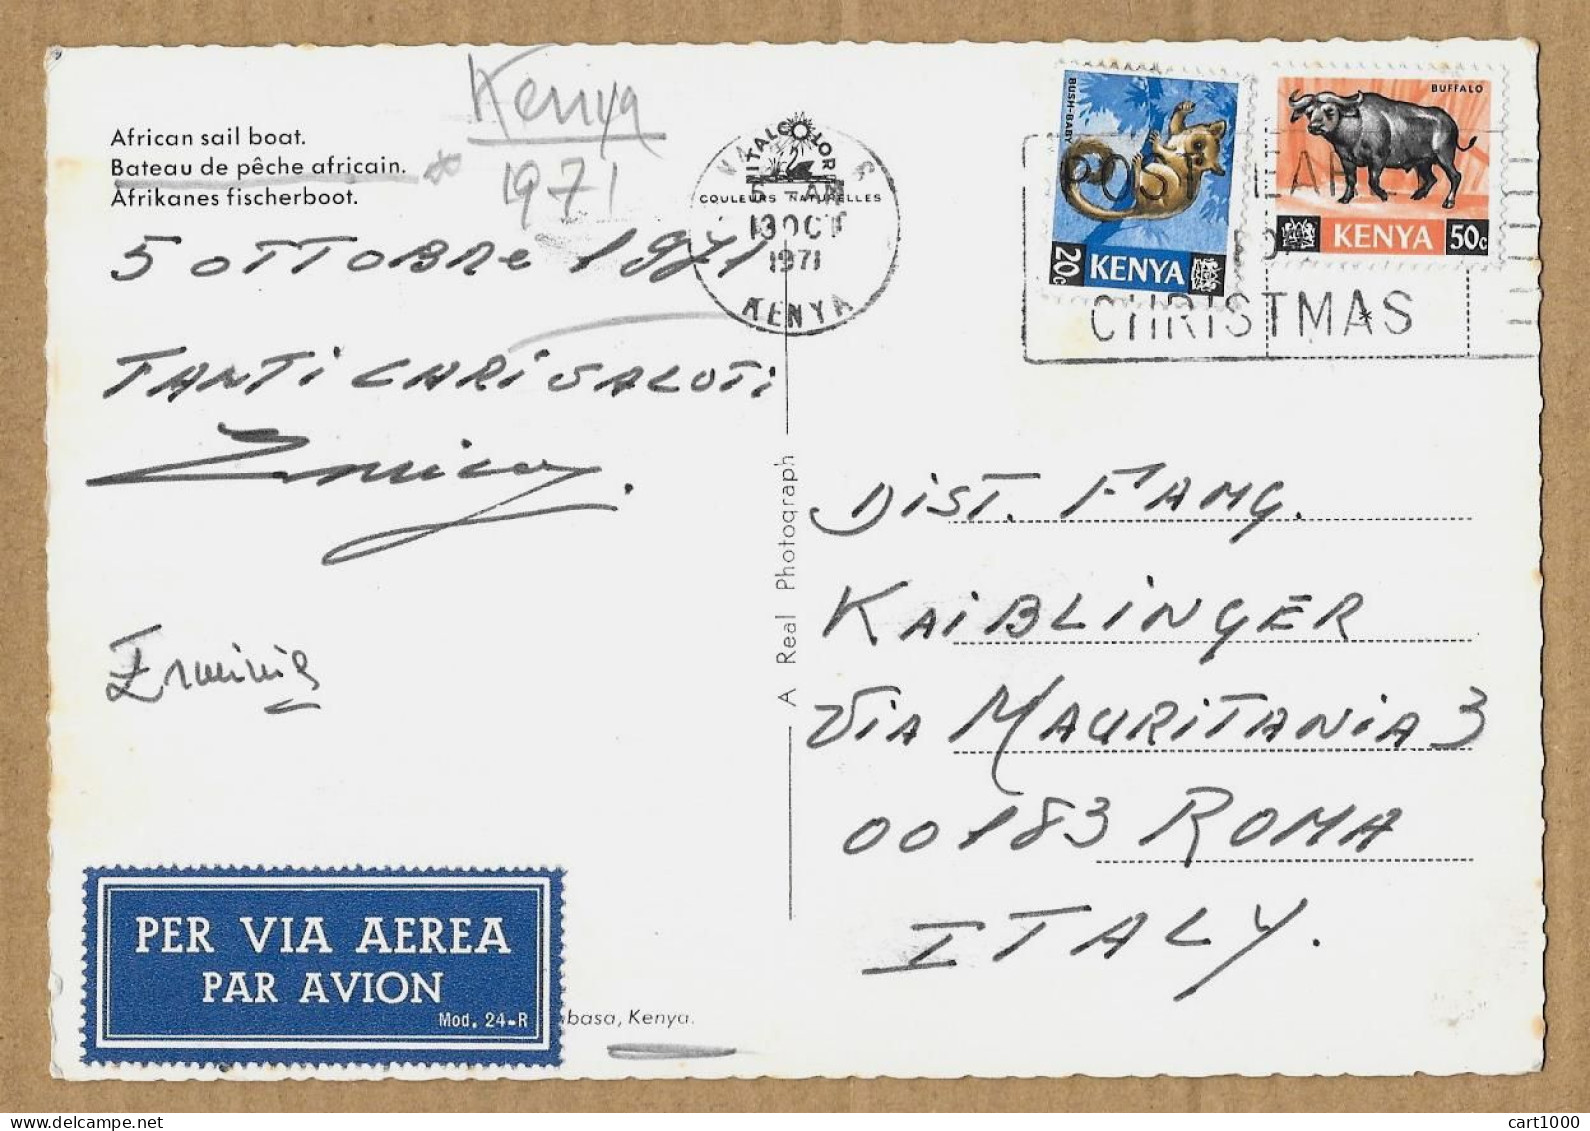 African sail boat.
Bateau de pêche africain.
Afrikanes fischerboot.
Kenya
1971
ITALCOLOR
COULEURS NATURELLES
5 - AM
13 OCT
1971
KENYA
BUSH-BABY
20c KENYA
BUFFALO
KENYA 50c
POST EARLY
FOR
CHRISTMAS
5 OTTOBRE 1971
TANTI CARI SALUTI
Erminia
A Real Photograph
DIST. FAMG.
KAIBLINGER
VIA MAURITANIA 3
00183 ROMA
ITALY.
PER VIA AEREA
PAR AVION
Mod. 24-R
basa, Kenya.
cart1000